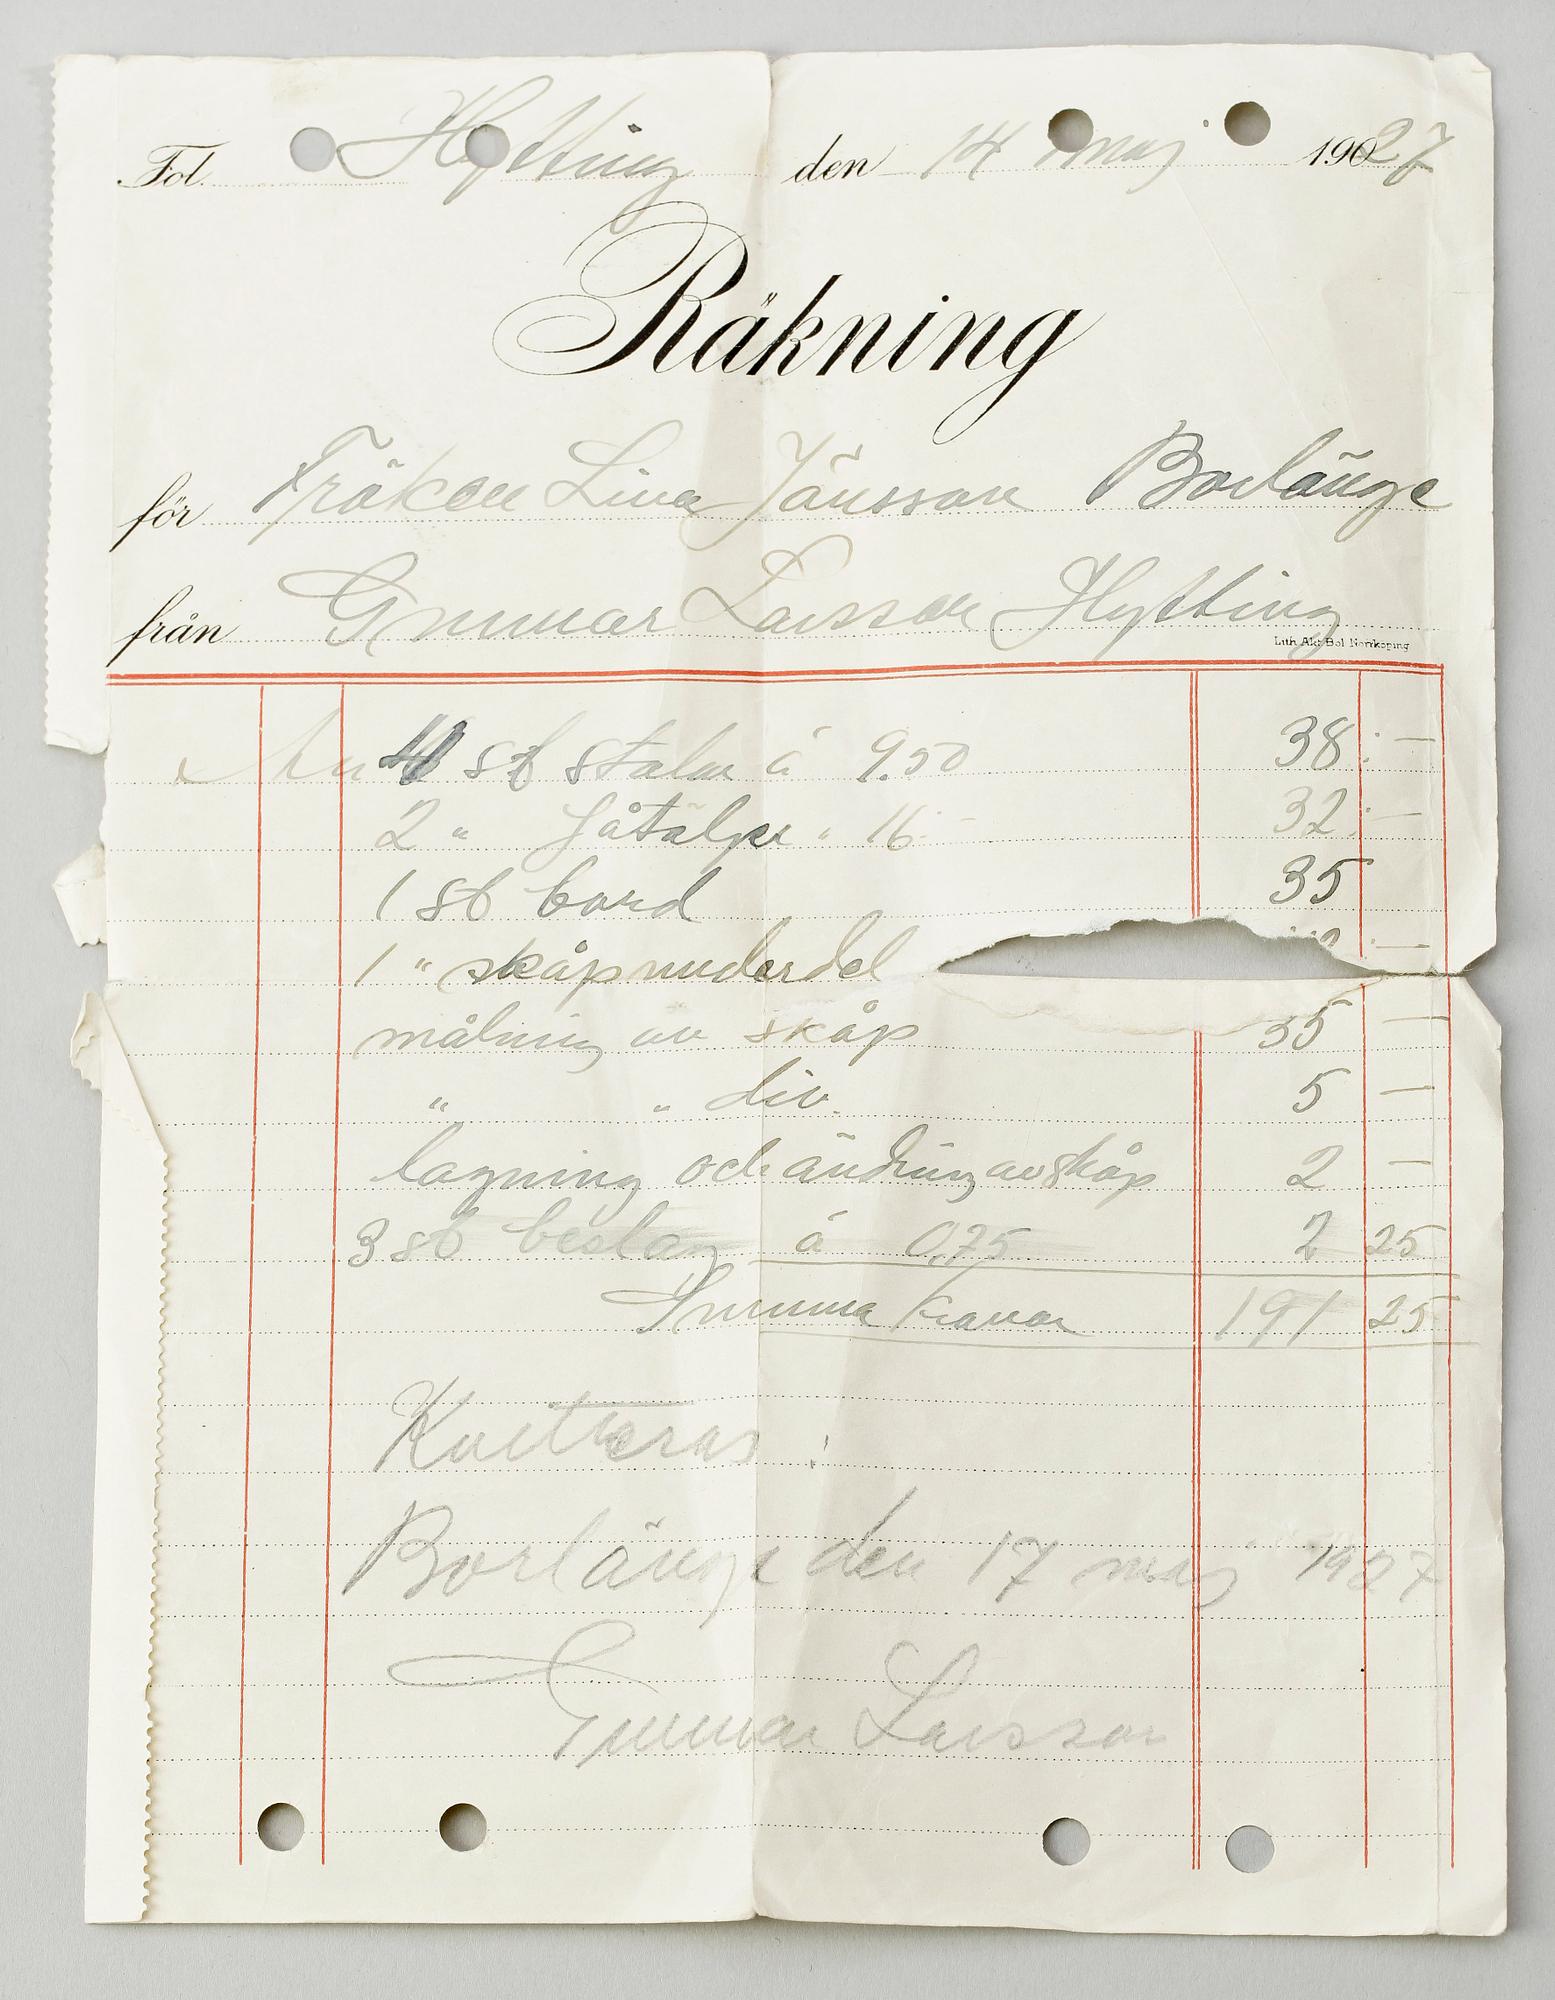 Fol. Hytting den 14 maj 1927
Räkning
för Fröken Lina Jansson Borlänge
från Gunnar Larsson Hytting
Lith. Akt. Bol. Norrköping
An 4 st stolar á 9.50 38:—
2 " " 16:— 32:—
1 st bord 35
1 " skåpunderdel —
målning av skåp 35 —
" " div. 5 —
lagning och ändring av skåp 2 —
3 st beslag á 0,75 2 25
Summa Kronor 191 25
Kvitteras:
Borlänge den 17 maj 1927
Gunnar Larsson